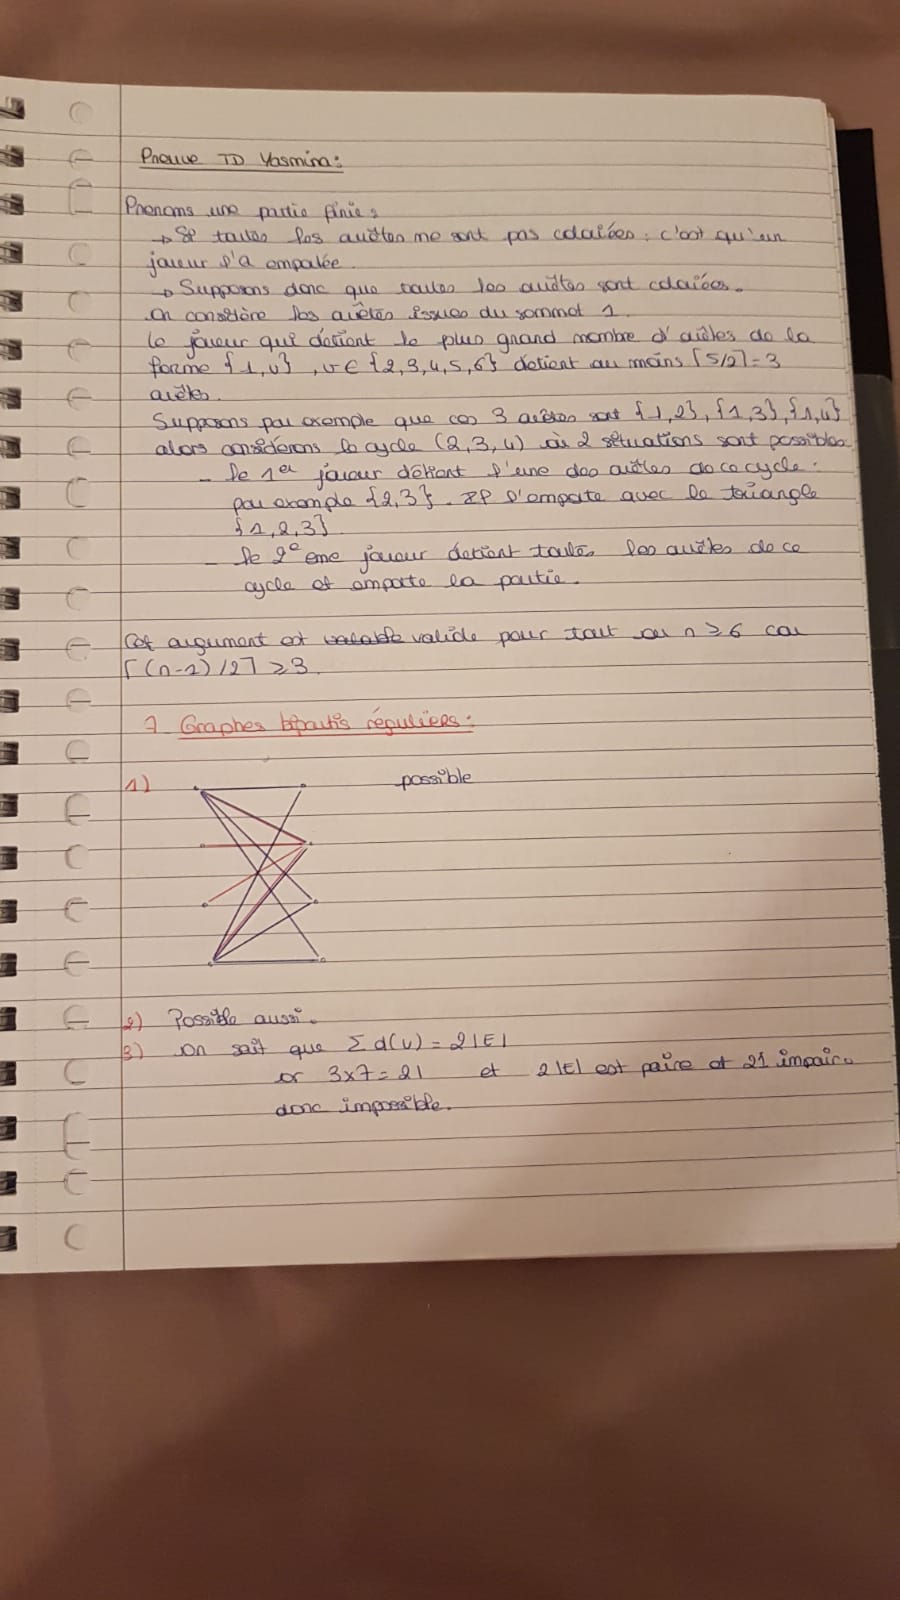 Preuve TD Yasmina:
Prenons une partie finie:
→ Si toutes les arêtes ne sont pas coloriées, c'est qu'un
joueur l'a emportée.
→ Supposons donc que toutes les arêtes sont coloriées.
On considère les arêtes issues du sommet 1.
Le joueur qui détient le plus grand nombre d'arêtes de la
forme {1,v}, v ∈ {2,3,4,5,6} détient au moins ⌈5/2⌉=3
arêtes.
Supposons par exemple que ces 3 arêtes sont {1,2},{1,3},{1,4}
alors considérons le cycle (2,3,4) où 2 situations sont possibles
- Le 1er joueur détient l'une des arêtes de ce cycle:
par exemple {2,3}. Il l'emporte avec le triangle
{1,2,3}
- Le 2e ème joueur détient toutes les arêtes de ce
cycle et emporte la partie.
Cet argument est valable valide pour tout n ≥ 6 car
⌈(n-1)/2⌉ ≥ 3.
7. Graphes bipartis réguliers:
1) possible
2) Possible aussi.
3) On sait que Σ d(v) = 2|E|
or 3x7=21 et 2|E| est paire et 21 impaire
donc impossible.